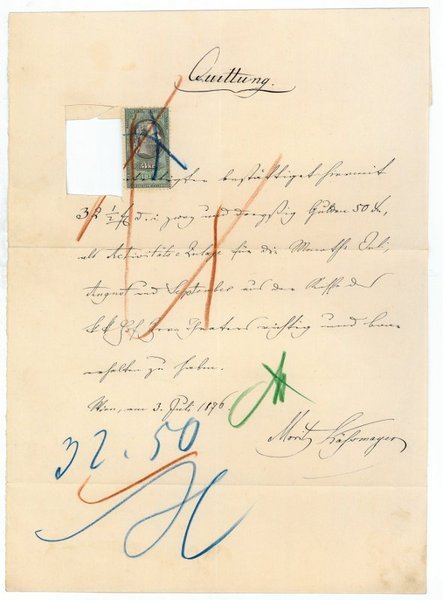 Quittung.
bestättiget hiermit
32 1/2 f d. i. zwey und dreyßig Gulden 50 kr,
als Activitäts-Zulage für die Monathe Juli,
August und September aus der Kasse des
k k Hof Operntheaters richtig und baar
erhalten zu haben.
Wien, am 3. Juli 1876
Moritz Käßmayer
32.50